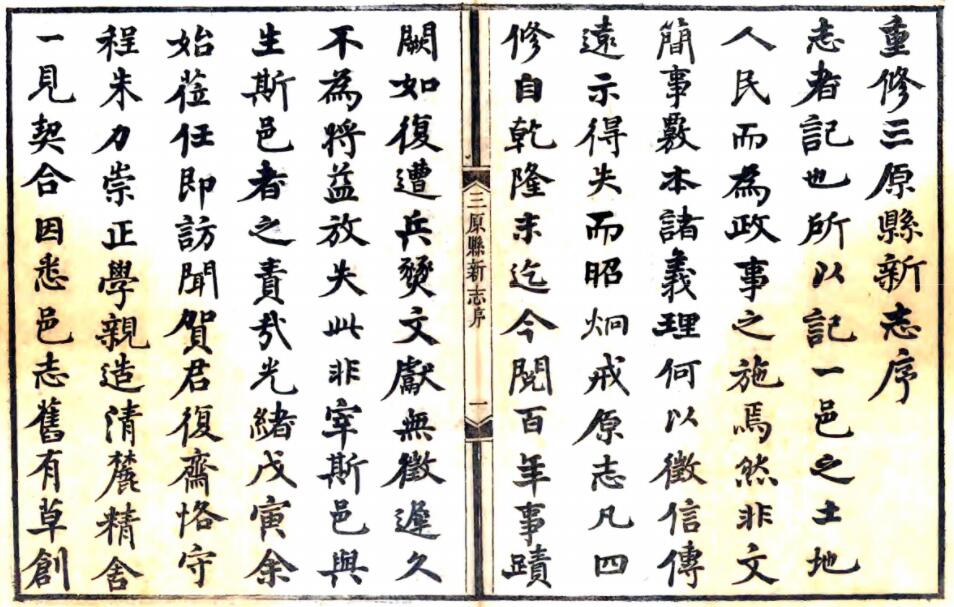 重修三原縣新志序
志者記也所以記一邑之土地
人民而為政事之施焉然非文
簡事覈本諸義理何以徵信傳
遠示得失而昭炯戒原志凡四
修自乾隆末迄今閱百年事蹟
三原縣新志序 一
闕如復遭兵燹文獻無徵遲久
不為將益放失此非宰斯邑與
生斯邑者之責哉光緒戊寅余
始蒞任即訪聞賀君復齋恪守
程朱力崇正學親造清麓精舍
一見契合因悉邑志舊有草創